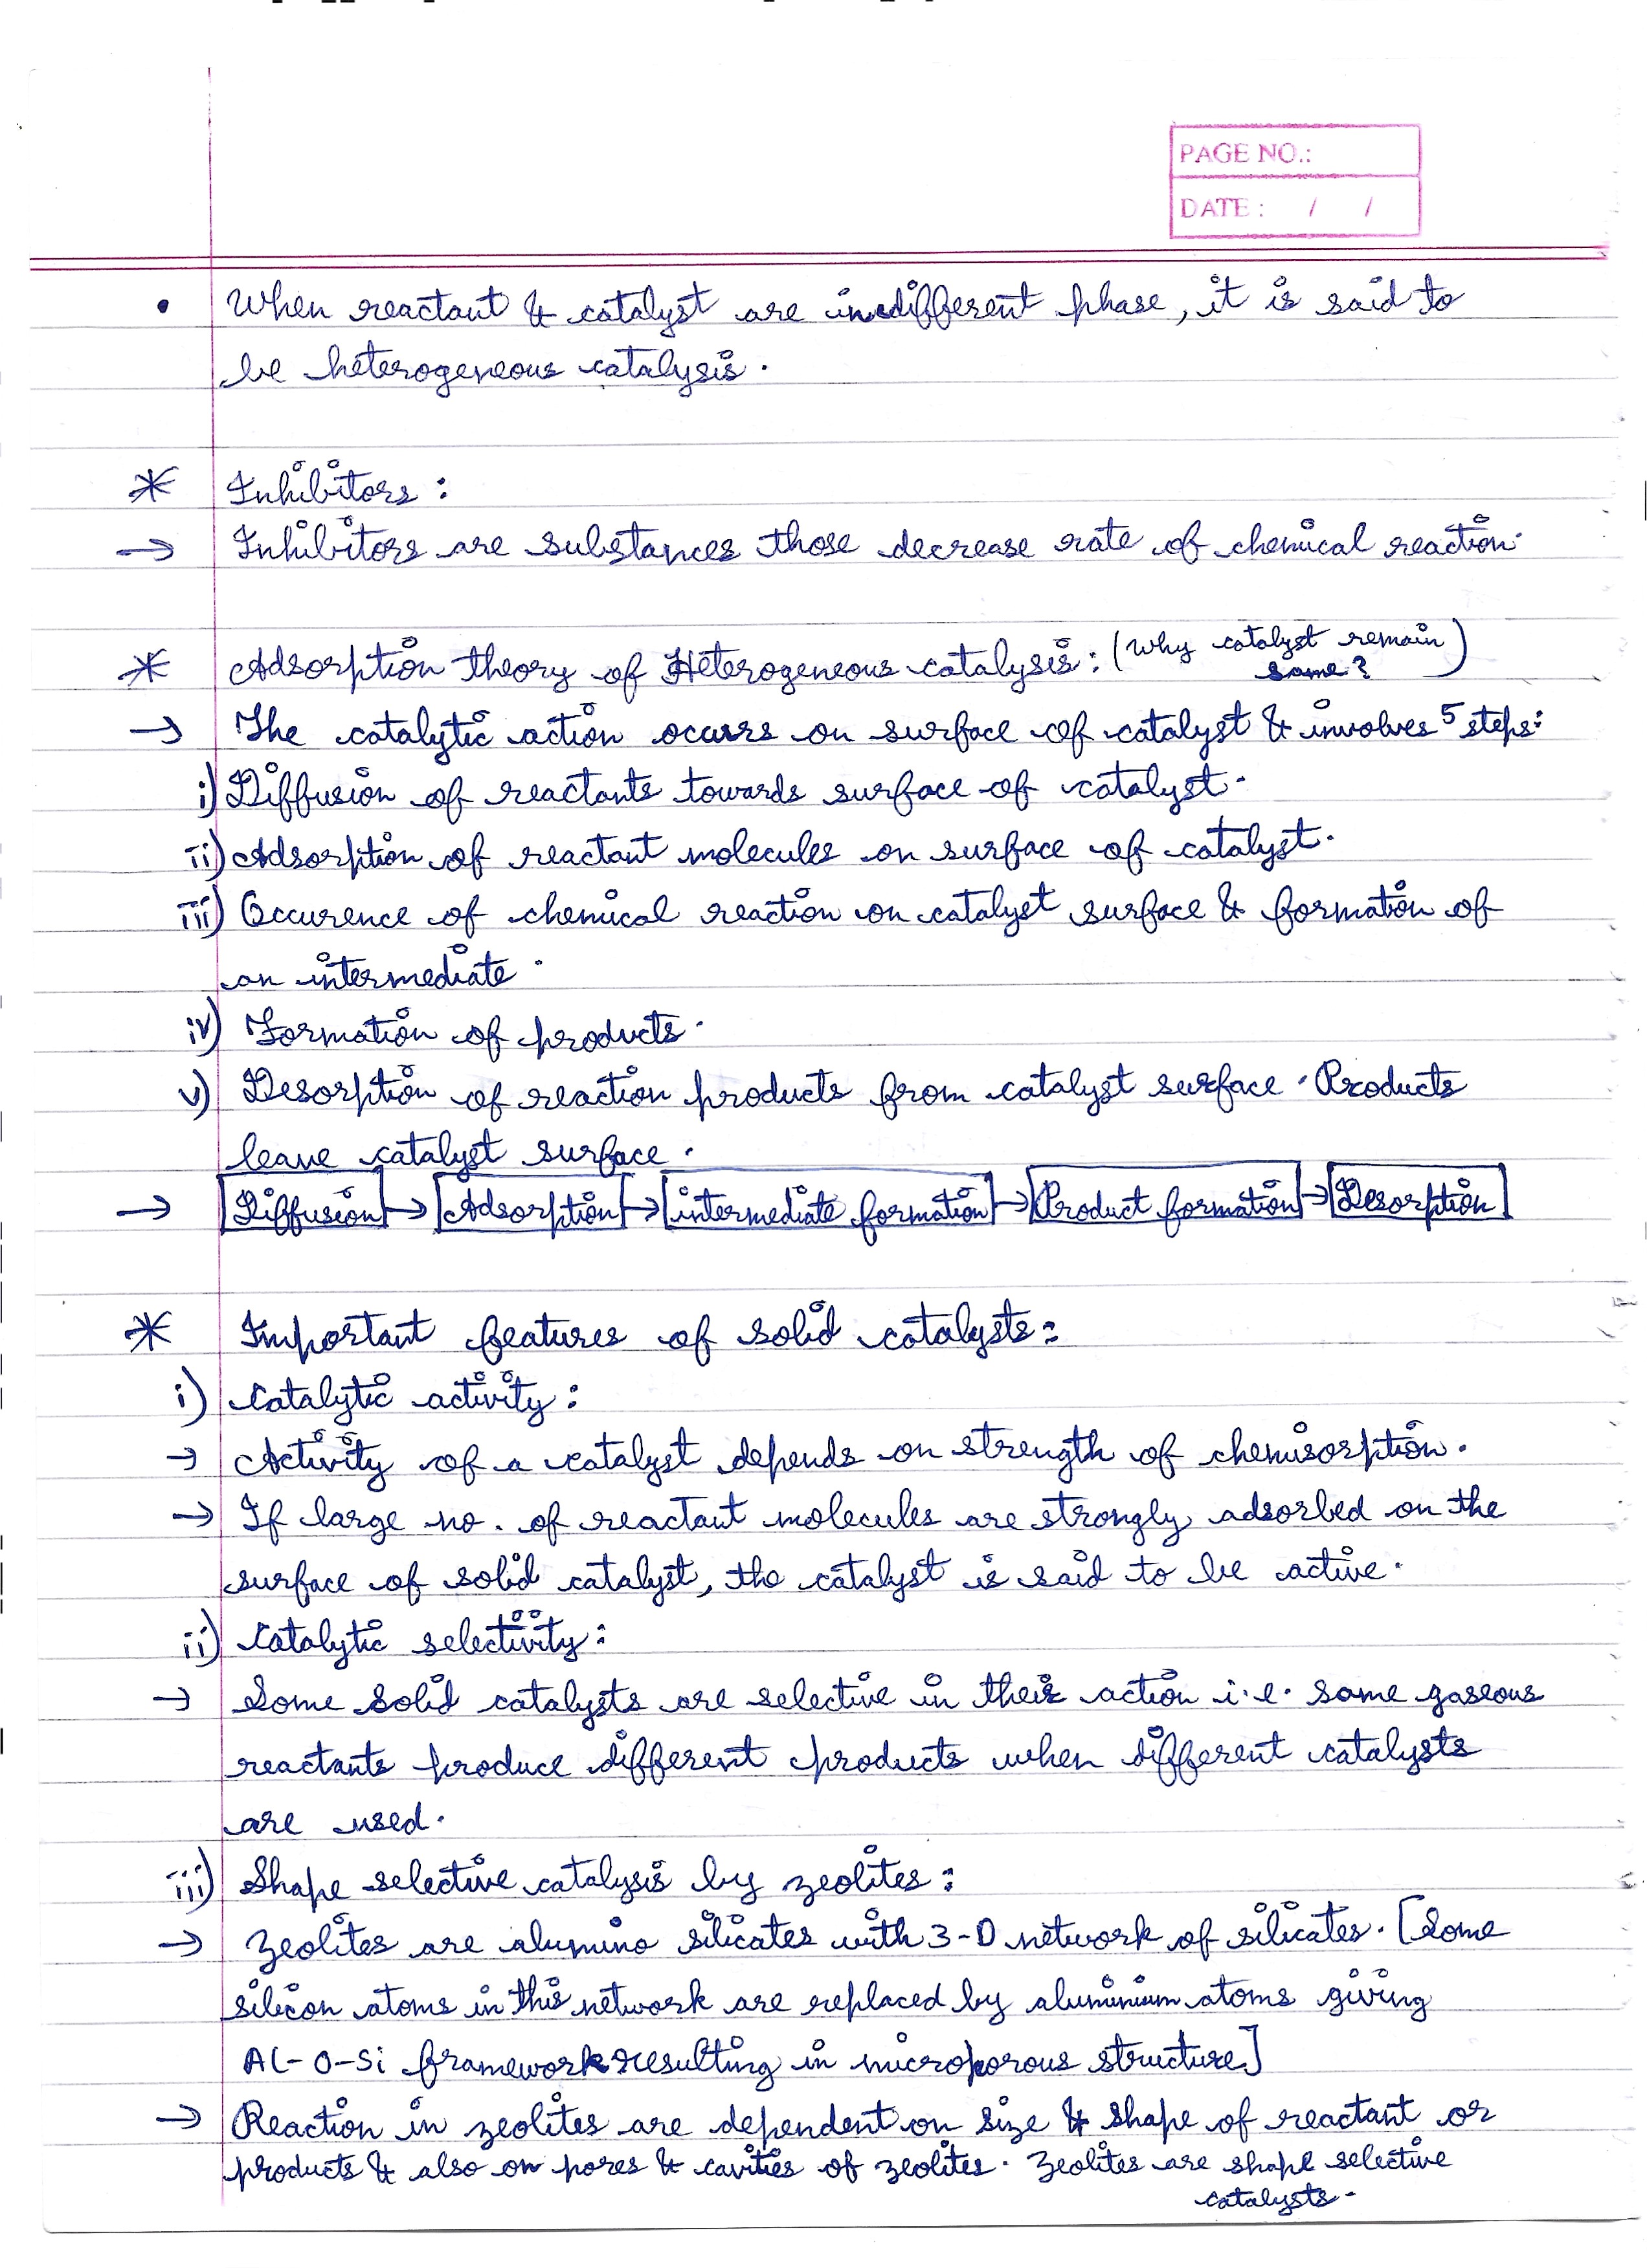 PAGE NO.:
DATE : / /
• When reactant & catalyst are in different phase, it is said to
be heterogeneous catalysis.
* Inhibitors :
→ Inhibitors are substances those decrease rate of chemical reaction.
* Adsorption theory of Heterogeneous catalysis : (Why catalyst remain
same?)
→ The catalytic action occurs on surface of catalyst & involves 5 steps:
i) Diffusion of reactants towards surface of catalyst.
ii) Adsorption of reactant molecules on surface of catalyst.
iii) Occurence of chemical reaction on catalyst surface & formation of
an intermediate.
iv) Formation of products.
v) Desorption of reaction products from catalyst surface. Products
leave catalyst surface.
→ Diffusion → Adsorption → intermediate formation → Product formation → Desorption
* Important features of solid catalysts:
i) Catalytic activity :
→ Activity of a catalyst depends on strength of chemisorption.
→ If large no. of reactant molecules are strongly adsorbed on the
surface of solid catalyst, the catalyst is said to be active.
ii) Catalytic selectivity:
→ Some solid catalysts are selective in their action i.e. same gaseous
reactants produce different products when different catalysts
are used.
iii) Shape selective catalysis by zeolites :
→ Zeolites are alumino silicates with 3-D network of silicates. [Some
silicon atoms in this network are replaced by aluminium atoms giving
Al-O-Si framework resulting in microporous structure]
→ Reaction in zeolites are dependent on size & shape of reactant or
products & also on pores & cavities of zeolites. Zeolites are shape selective
catalysts.